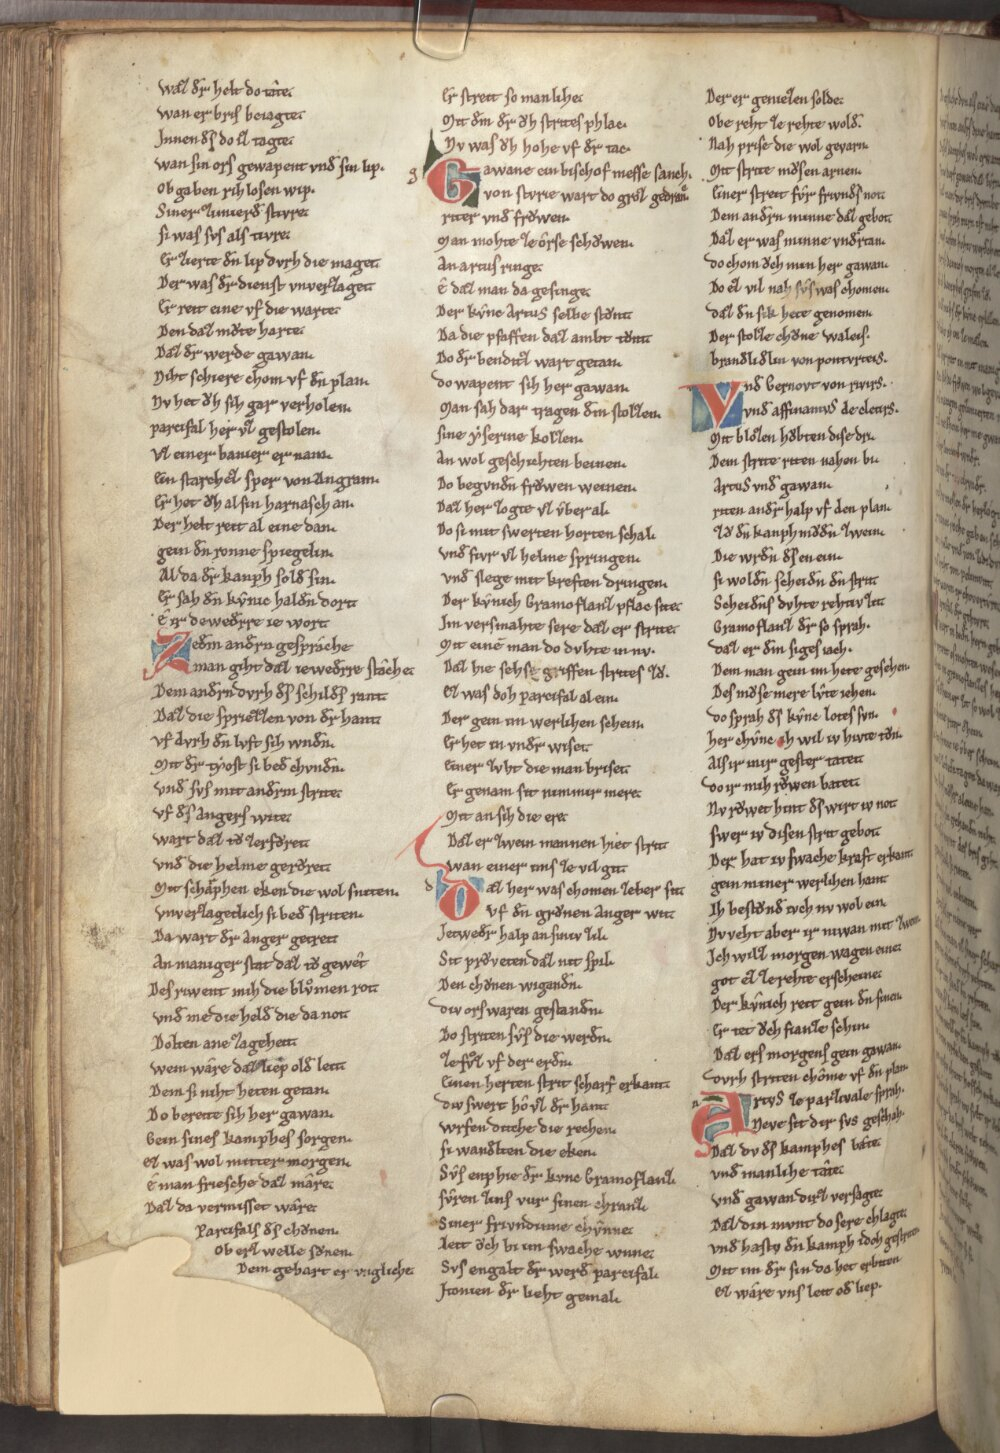 waz dˢ helt do tæte.
wan er bris beiagte.
Innen dˢ do iz tagte.
wan sin ors gewapent vnd sin lip.
Ob gaben rih losen wip.
Siner zimierd stivre.
si waz svs als tivre.
Er zierte dn lip dvrh die maget.
Der waz dˢ dienst vnverzaget.
Er reit eine vf die warte.
Den daz mͦte harte.
Daz dˢ werde gawan.
Niht schiere chom vf dn plan.
Nv het ǒh sih gar verholen.
parcifal her vz gestolen.
Vz einer banier er nam.
Ein starchez sper von Angram.
Er het ǒh al sin harnasch an.
Der helt reit al eine dan.
gein dn ronne spiegelin.
Al da dˢ kanph sold sin.
Er sah dn kv̂nic haldn dort.
E ir dewedˢre ie wort.
Zedem andˢn gespræche
man giht daz iewedˢre stæche.
Dem andˢn dvrh ds schilds rant.
Daz die sprizzen von dˢ hant.
vf dvrh dn lvft sih wndn.
Mit dˢ tyost si bed chvndn.
vnd svs mit andˢm strite.
vf ds angers wite.
wart daz tǒ zerfv̊ret.
vnd die helme gerv̊ret.
Mit schærphen eken die wol sniten.
vnverzagetlich si bed striten.
Da wart dˢ anger getret.
An maniger stat daz tǒ gewet.
Des rivent mih die blv̊men rot.
vnd me die held die da not.
Dolten ane zageheit.
wem wære daz liep old leit.
Dem si niht heten getan.
Do bereite sih her gawan.
Gein sines kamphes sorgen.
ez was wol mitter morgen.
E man friesche daz mære.
Daz da vermisset wære.
Parcifals ds chv̊nen.
Ob erz welle sv̊nen.
Dem gebart er vngliche.
Er streit so manliche.
Mit dem dˢ ǒh strites phlac.
Nv was ǒh hohe vf dˢ tac.
Gawane ein bischof messe sanch.
von storie wart do groz gedranc.
riter vnd frǒwen.
Man mohte ze orse schǒwen.
An artus ringe.
E daz man da gesinge.
Der kv̂nc Artus selbe stv̊nt.
Da die pfaffen daz ambt tv̊nt.
Do dˢ bendiz wart getan.
do wapent sih her gawan.
Man sah dar tragen dem stolzen.
sine yserine kolzen.
An wol geschichten beinen.
Do begvndn frǒwen weinen.
Daz her zogte vz v̂ber al.
Do si mit swerten horten schal.
vnd fivr vz helme springen.
vnd slege mit kreften dringen.
Der kv̂nich Gramoflanz pflac site.
Im versmahte sere daz er strite.
Mit eine man do dvhte in nv.
Daz hie sehse griffen strites zv̊.
ez was doh parcifal al ein.
Der gein im werlichen schein.
Er het in vndˢ wiset.
Einer zvht die man briset.
Er genam sit nimmir mere.
Mit an sih die ere.
Daz er zwein mannen hiet strit
wan einer tins ze vil git.
Daz her was chomen ieber sit
vf dn grv̊nen Anger wit.
Jetwedˢr halp an siniv zil.
Sit prv̊veten daz nit spil.
Den chv̊nen wigandn.
div ors waren gestandn.
Do striten svs die werdn.
ze fv̊z vf der erdn.
Einen herten strit scharf erkant.
div swert hoh vz dˢ hant.
wrfen ditche die rechen.
si wandlten die eken.
Svs enphie dˢ kv̂nc Gramoflanz
sv̊ren zins vur sinen chranz.
Siner frivndinne chv̂nne.
leit ǒh bi im swache wnne.
Svs engalt dˢ werd parcifal.
Jtonien dˢ lieht gemal.
Der er geniezen solde.
Obe reht ze rehte wold.
Nah prise die wol gevarn.
Mit strite mv̊sen arnen.
Einer streit fv̂r frivnds not.
Dem andˢn minne daz gebot.
Daz er was minne vndˢtan.
do chom ǒch min her gawan.
Do ez vil nah svs was chomen.
daz dn sik hete genomen.
Der stolze chv̊ne waleis.
brandlidlin von pontvrteis.
Vnd Bernovt von rivirs.
vnd affinamus de cleitirs.
Mit blozen hǒbten dise dri.
Dem strite riten nahen bi.
Artus vnd gawan.
riten andˢ halp vf den plan.
zv̊ dn kanphmv̊dn zwein.
Die wrdn ds en ein.
si woldn scheidn dn strit.
Scheidns dvhte rehtiv zit
Gramoflanz dˢ so sprah.
daz er dem siges iach.
Dem man gein im hete gesehen.
Des mv̊se mere lv̂te iehen.
do sprah ds kv̂nc lotes sun.
her chv̂nc ih wil iv hivte tv̊n.
Als ir mir gester tatet.
do ir mih rv̊wen batet.
Nv rv̊wet hint ds wirt iv not.
swer iv disen strit gebot.
Der hat iv swache kraft erkant.
gein miner werlichen hant.
Ih bestv̊nd ivch nv wol ein.
Nv veht aber ir niwan mit zwein.
Jch wilz morgen wagen eine.
got ez ze rehte erscheine.
Der kv̂nich reit gein dn sinen.
Er tet ǒch fianze schin.
Daz ers morgens gein gawan.
dvrh striten chome vf dn plan.
Artvs ze parzivale sprah.
Neve sit dir svs geschah.
Daz dv ds kamphes bæte.
vnd manliche tæte.
vnd gawan dirz versagte.
Daz din mvnt do sere chlagte.
vnd hastv dn kamph idoh gestriten
Mit im dˢ sin da het erbiten
ez wære vns leit od liep.